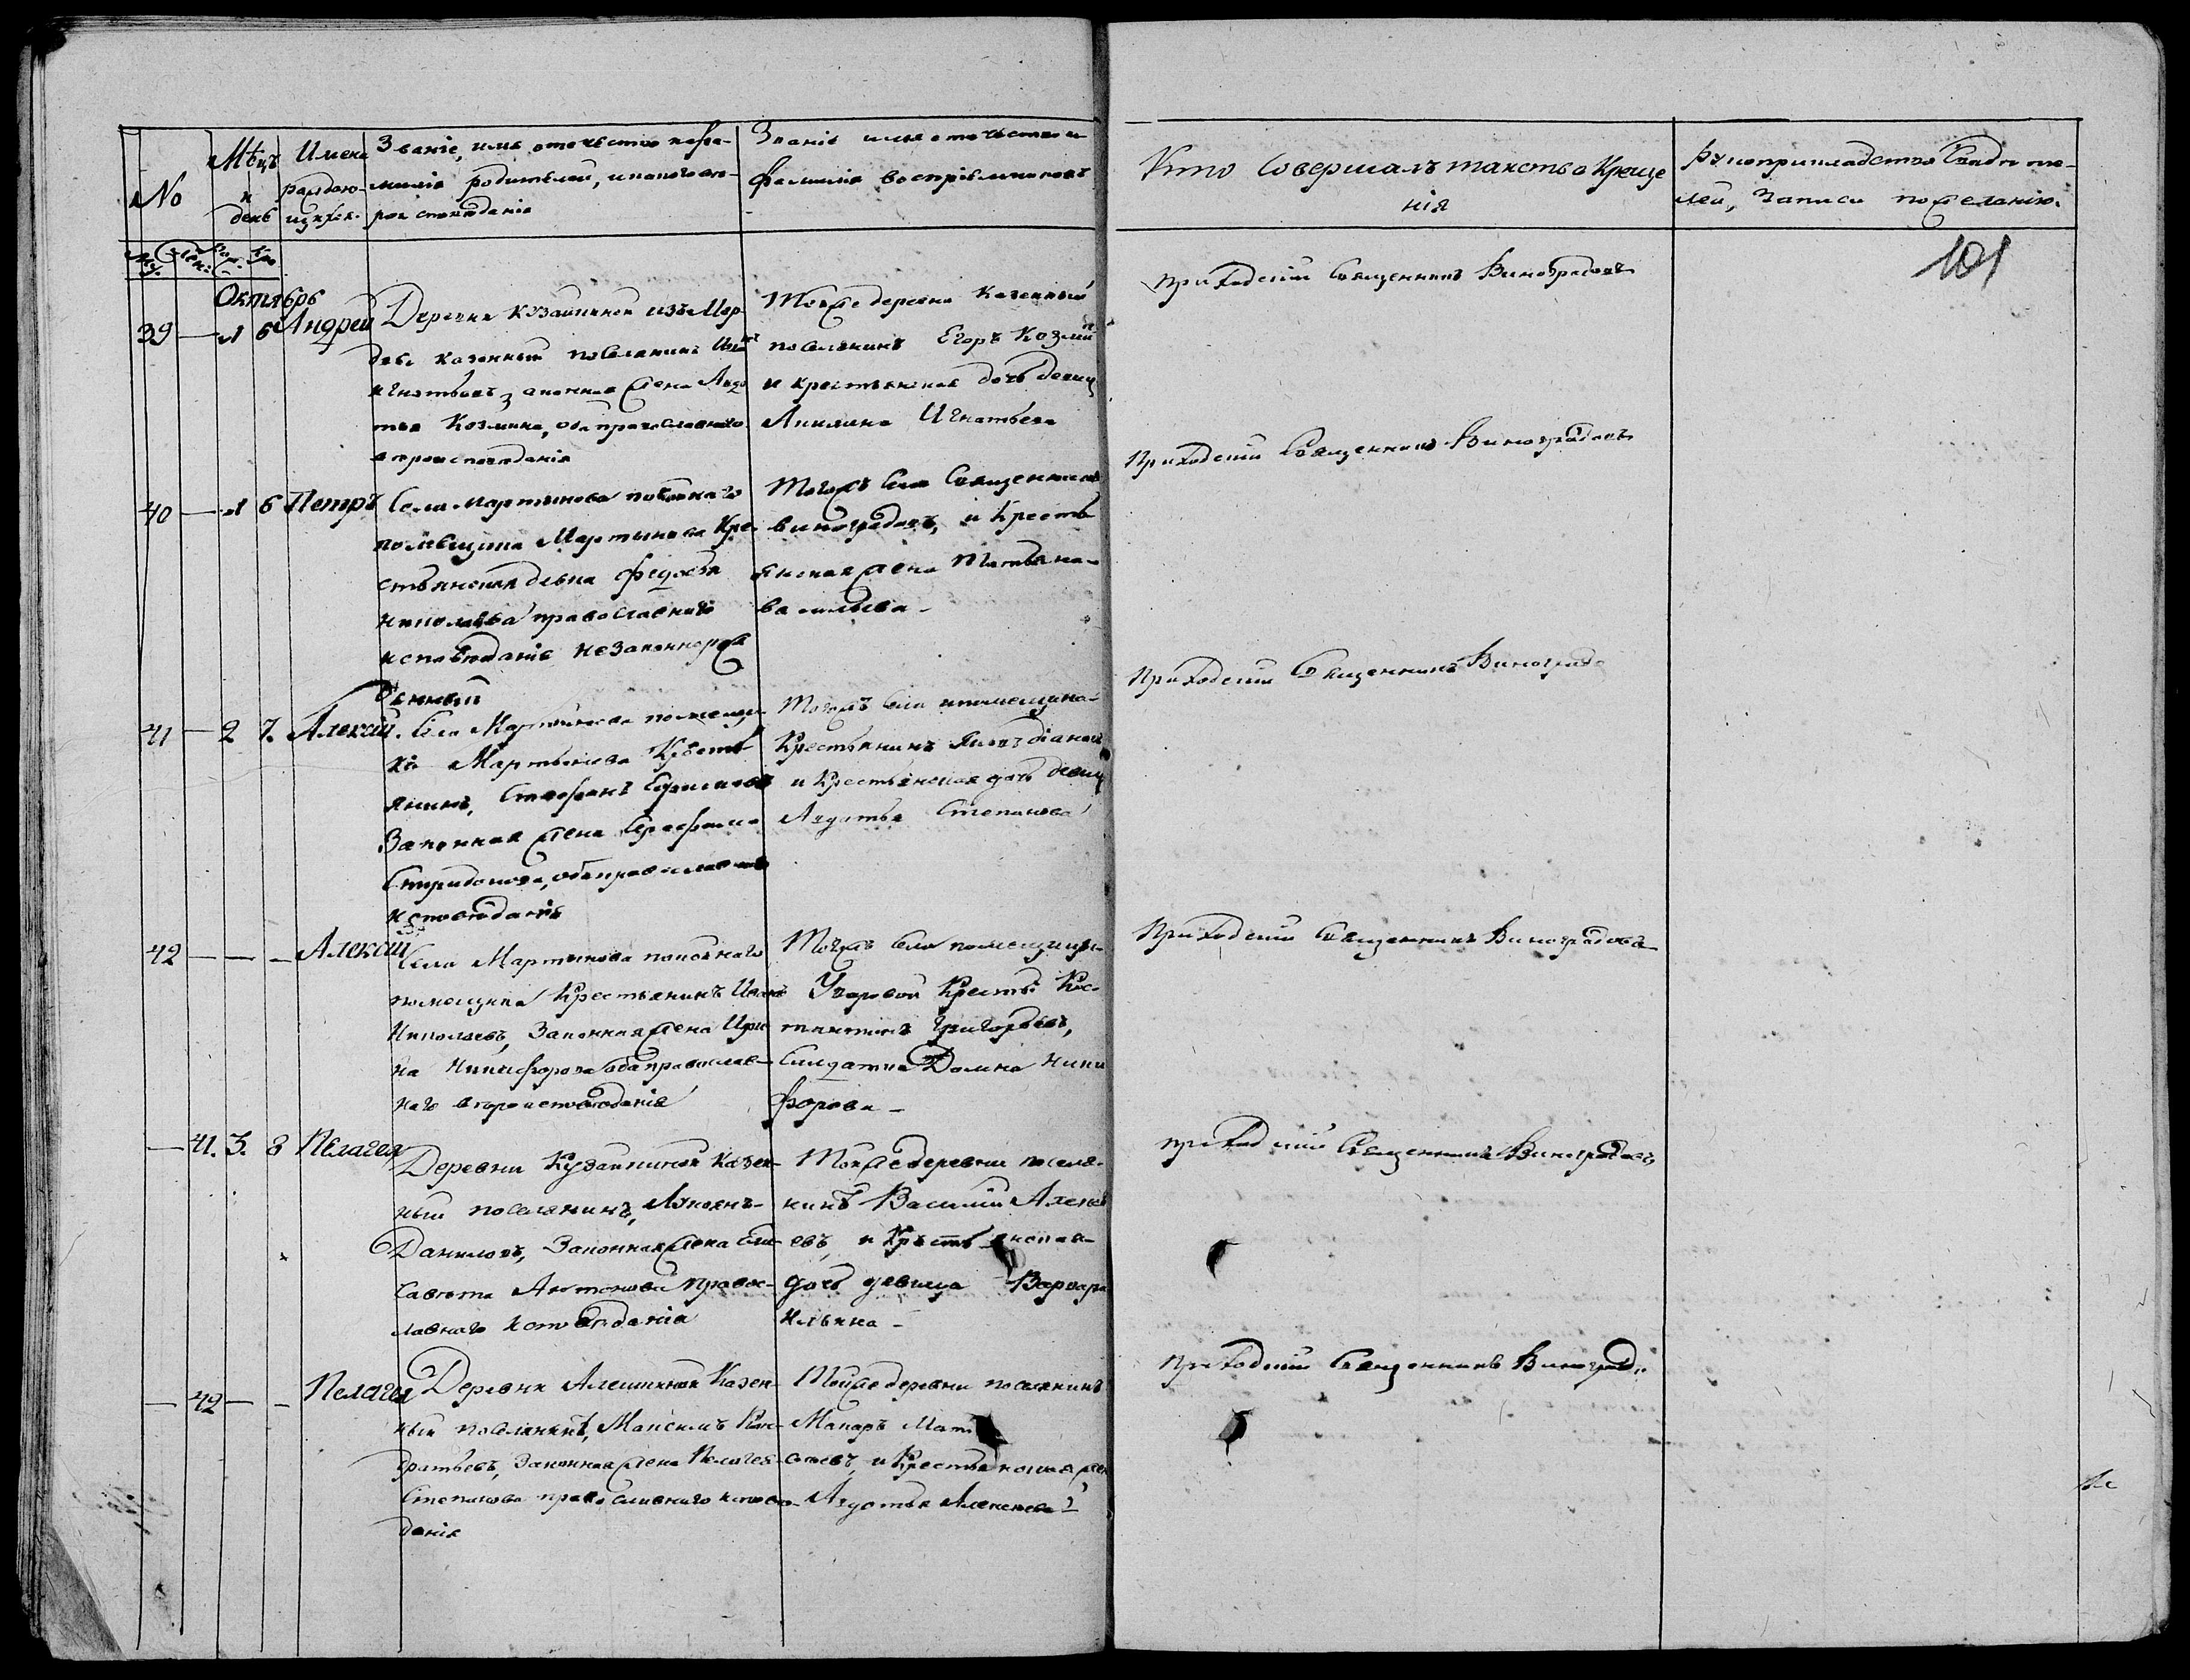 No
Мѣцъ и день
Имена раждающихся
Званіе, имя, отечество и фамилія родителей, и какого вѣроисповѣданія
Званіе имя отечество и фамилія воспріемниковъ
Кто совершалъ таинство Крещенія
Рукоприкладство свидѣтелей, записи по желанію.
101
Октябрь
39 — 1 6 Андрей
Деревни
изъ Мор
двы казенный поселянинъ
Игнатьевъ, законная жена Авдо
тья Козмина, оба православнаго
вѣроисповѣданія
Тояже деревни казенный
поселянинъ Егоръ Козмин
и крестьянская дочь девиц
Акилина Игнатьева
Приходскій Священникъ Виноградовъ
40 — 1 6 Петръ
Села Мартынова покойнаго
помѣщика Мартынова Кре
стьянская девка Федосья
Николаева православнаго
исповѣданія незаконнорож
денный
Тогожъ села Священникъ
Виноградовъ, и Кресть
янская жена Татьяна
Васильева —
Приходскій Священникъ Виноградовъ
41 — 2 7. Алексій.
Села Мартынова помещи
ка Мартынова Кресть
янинъ, Стефанъ
Законная жена
Спиридонова, оба православнаго
исповѣданія
Тогожъ села помещика
Крестьянинъ
и Крестьянская дочь девиц
Авдотья Степанова
Приходскій Священникъ Виноградо
42 — — — Алексій
Села Мартынова покойнаго
помещика Крестьянинъ Иванъ
Николаевъ, Законная жена Ири
на Никифорова оба православ
наго вѣроисповѣданія
Тогожъ села помещицы
Уваровой Крестья Кос
тантинъ Григорьевъ,
Салдатка Домна Ники
форова —
Приходскій Священникъ Виноградовъ
— 41. 3. 8 Пелагея
Деревни Казен
ный поселянинъ, Лукьянъ
Даниловъ, Законная жена Ели
савета Антонова правос
лавнаго исповѣданія
Тояже деревни поселя
нинъ Василій Алексе
евъ, и Крестьянская
дочь девица Варвара
Ильина —
Приходскій Священникъ Виноградовъ
— 42 — — Пелагея
Деревни Алешкиной Казен
ный поселянинъ, Максимъ Кон
дратьевъ, Законная жена Пелагея
Степанова православнаго исповѣ
данія
Тойже деревни поселянинъ
Макаръ Мат
веевъ, и Крестьянская жен
Авдотья Алексеева
Приходскій Священникъ Виноградо